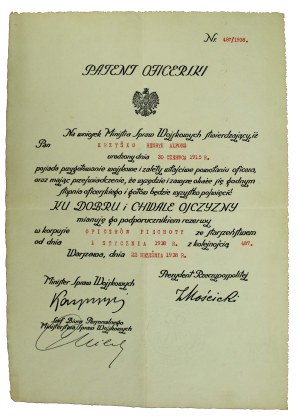 Nr 497/1938.
PATENT OFICERSKI
Na wniosek Ministra Spraw Wojskowych stwierdzający, iż
Pan HENRYK ALFONS
urodzony dnia 30 CZERWCA 1915 R.
posiada przygotowanie wojskowe i zalety właściwe powołaniu oficera,
oraz mając przeświadczenie, że wszędzie i zawsze okaże się godnym
stopnia oficerskiego i gotów będzie wszystko poświęcić
KU DOBRU i CHWALE OJCZYZNY
mianuję go podporucznikiem rezerwy
w korpusie OFICERÓW PIECHOTY ze starszeństwem
od dnia 1 STYCZNIA 1938 R z kolejnością 497.
Warszawa, dnia 1938 R
Minister Spraw Wojskowych
Prezydent Rzeczypospolitej
I Mościcki
Szef Biura Personalnego
Ministerstwa Spraw Wojskowych